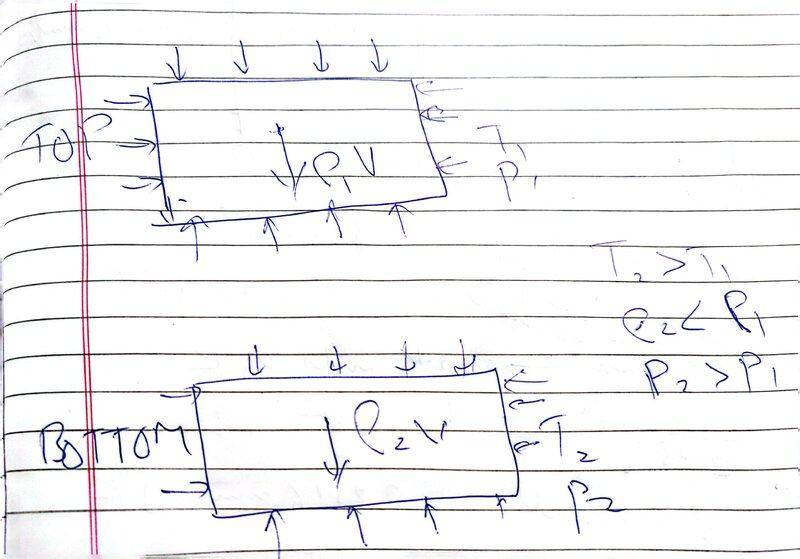 TOP
ρ₁V
T₁
P₁
T₂ > T₁
ρ₂ < ρ₁
P₂ > P₁
BOTTOM
ρ₂V
T₂
P₂